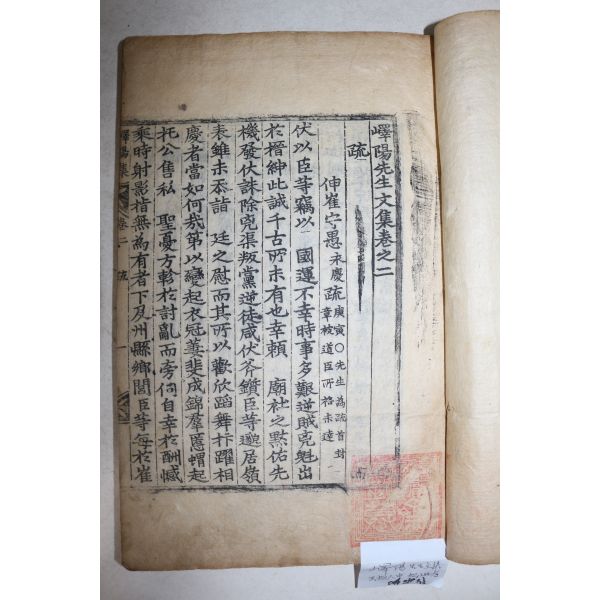 嶧陽先生文集卷之二
疏
伸崔守愚永慶疏 庚寅○先生為疏首封
章被道臣所格未達
伏以臣等竊以 國運不幸時事多艱逆賊克魁出
於搢紳此誠千古所未有也幸賴 廟社之黙佑先
機發伏誅除兇渠叛黨逆徒咸伏斧鑕臣等邈居嶺
表雖未忝詣 廷之慰而其所以歡欣蹈舞抃躍相
慶者當如何哉第以變起衣冠萋斐成錦羣慝蝟起
托公售私 聖憂方軫於討亂而旁伺自幸於酬憾
乘時射影指無為有者下及州縣鄉閭臣等每於崔
嶧陽集 卷二 疏